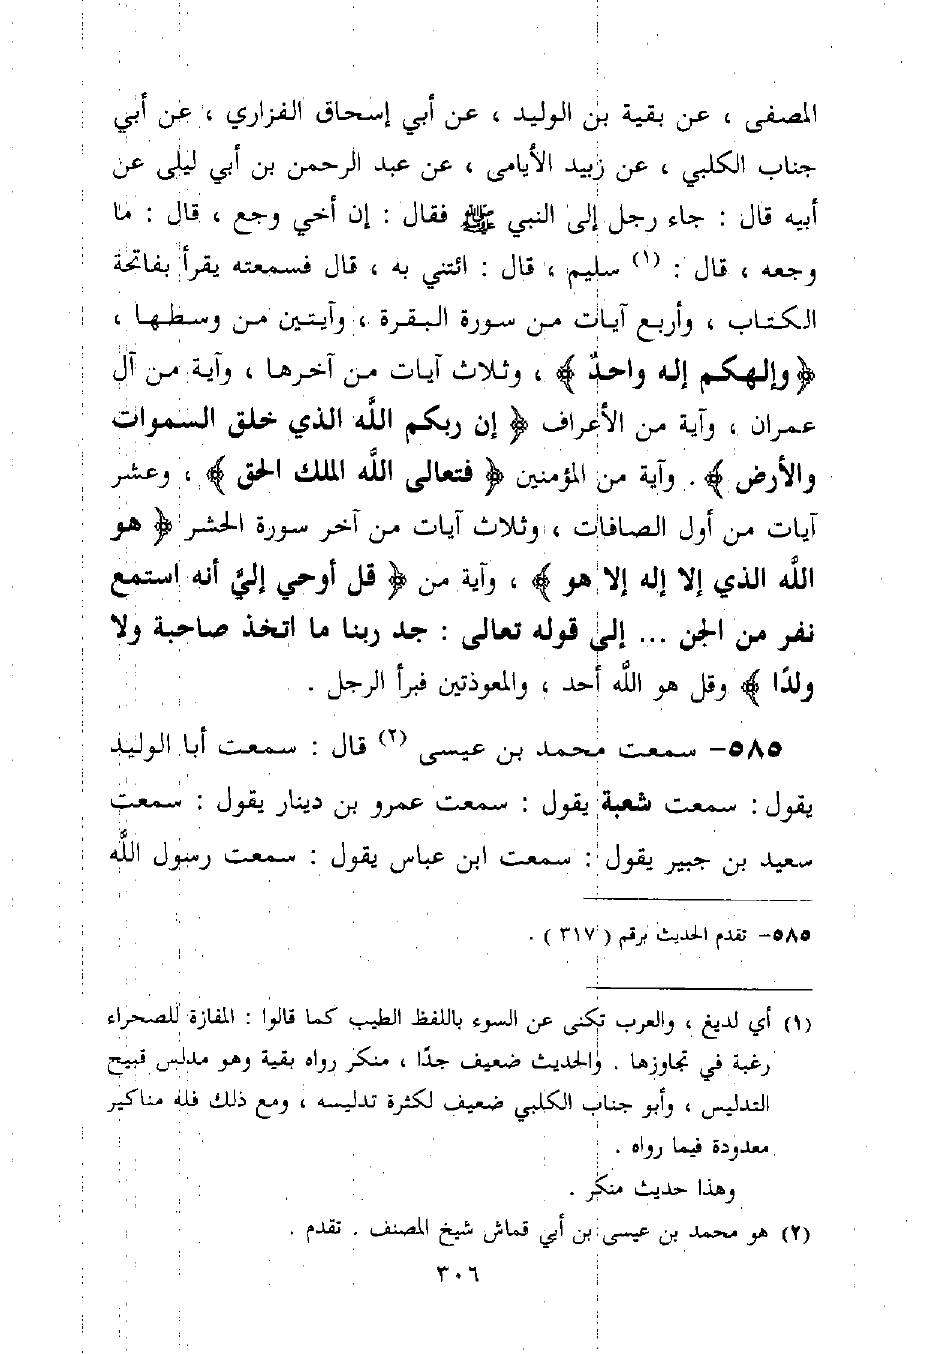 المصفى ، عن بقية بن الوليد ، عن أبي إسحاق الفزاري ، عن أبي
جناب الكلبي ، عن زبيد الأيامى ، عن عبد الرحمن بن أبي ليلى عن
أبيه قال : جاء رجل إلى النبي ﷺ فقال : إن أخي وجع ، قال : ما
وجعه ، قال : (١) سليم ، قال : ائتني به ، قال فسمعته يقرأ بفاتحة
الكتاب ، وأربع آيات من سورة البقرة ، وآيتين من وسطها ،
﴿ وإلهكم إله واحدٌ ﴾ ، وثلاث آيات من آخرها ، وآية من آل
عمران ، وآية من الأعراف ﴿ إن ربكم اللَّه الذي خلق السموات
والأرض ﴾ . وآية من المؤمنين ﴿ فتعالى اللَّه الملك الحق ﴾ ، وعشر
آيات من أول الصافات ، وثلاث آيات من آخر سورة الحشر ﴿ هو
اللَّه الذي إلا إله إلا هو ﴾ ، وآية من ﴿ قل أوحي إليَّ أنه استمع
نفر من الجن ... إلى قوله تعالى : جد ربنا ما اتخذ صاحبة ولا
ولدًا ﴾ وقل هو اللَّه أحد ، والمعوذتين فبرأ الرجل .
٥٨٥- سمعت محمد بن عيسى (٢) قال : سمعت أبا الوليد
يقول : سمعت شعبة يقول : سمعت عمرو بن دينار يقول : سمعت
سعيد بن جبير يقول : سمعت ابن عباس يقول : سمعت رسول اللَّه
٥٨٥- تقدم الحديث برقم ( ٣١٧ ) .
(١) أي لديغ ، والعرب تكنى عن السوء باللفظ الطيب كما قالوا : المفازة للصحراء
رغبة في تجاوزها . والحديث ضعيف جدًا ، منكر رواه بقية وهو مدلس قبيح
التدليس ، وأبو جناب الكلبي ضعيف لكثرة تدليسه ، ومع ذلك فله مناكير
معدودة فيما رواه .
وهذا حديث منكر .
(٢) هو محمد بن عيسى بن أبي قماش شيخ المصنف . تقدم .
٣٠٦